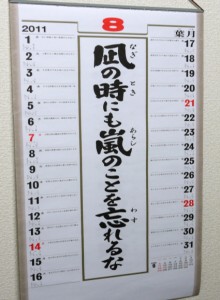 2011
8
葉月
1
2
3
4
5
6
7
8
9
10
11
12
13
14
15
16
凪の時にも嵐のことを忘れるな
なぎ
とき
あらし
わす
17
18
19
20
21
22
23
24
25
26
27
28
29
30
31